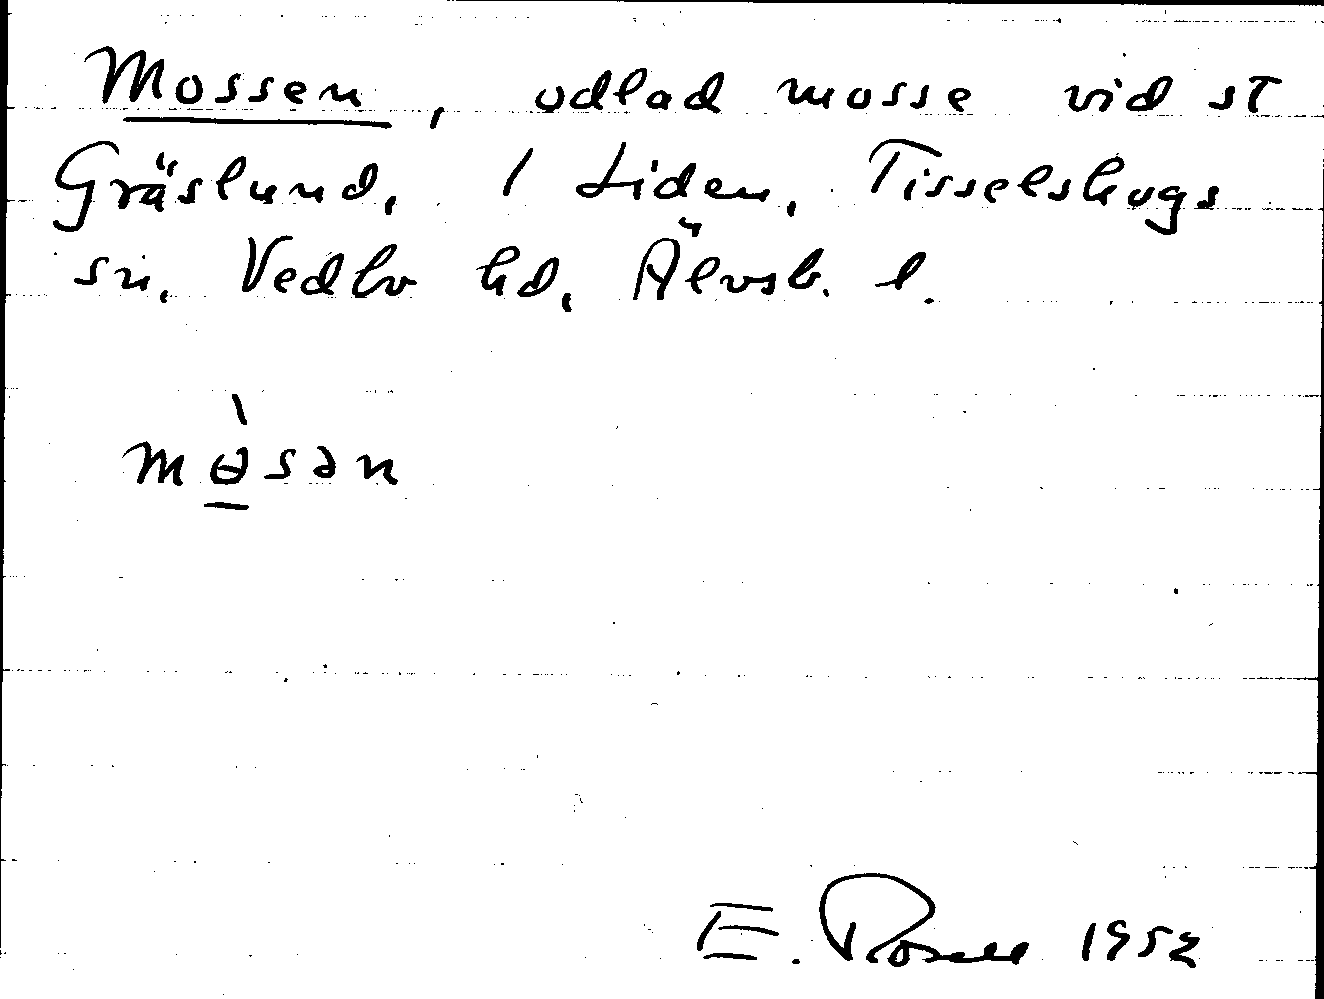 Mossen, odlad mosse vid st
Gräslund, 1 Liden, Tisselskogs
sn, Vedbo hd, Älvsb. l.
mɵ̠̀sən
E. Rosell 1952